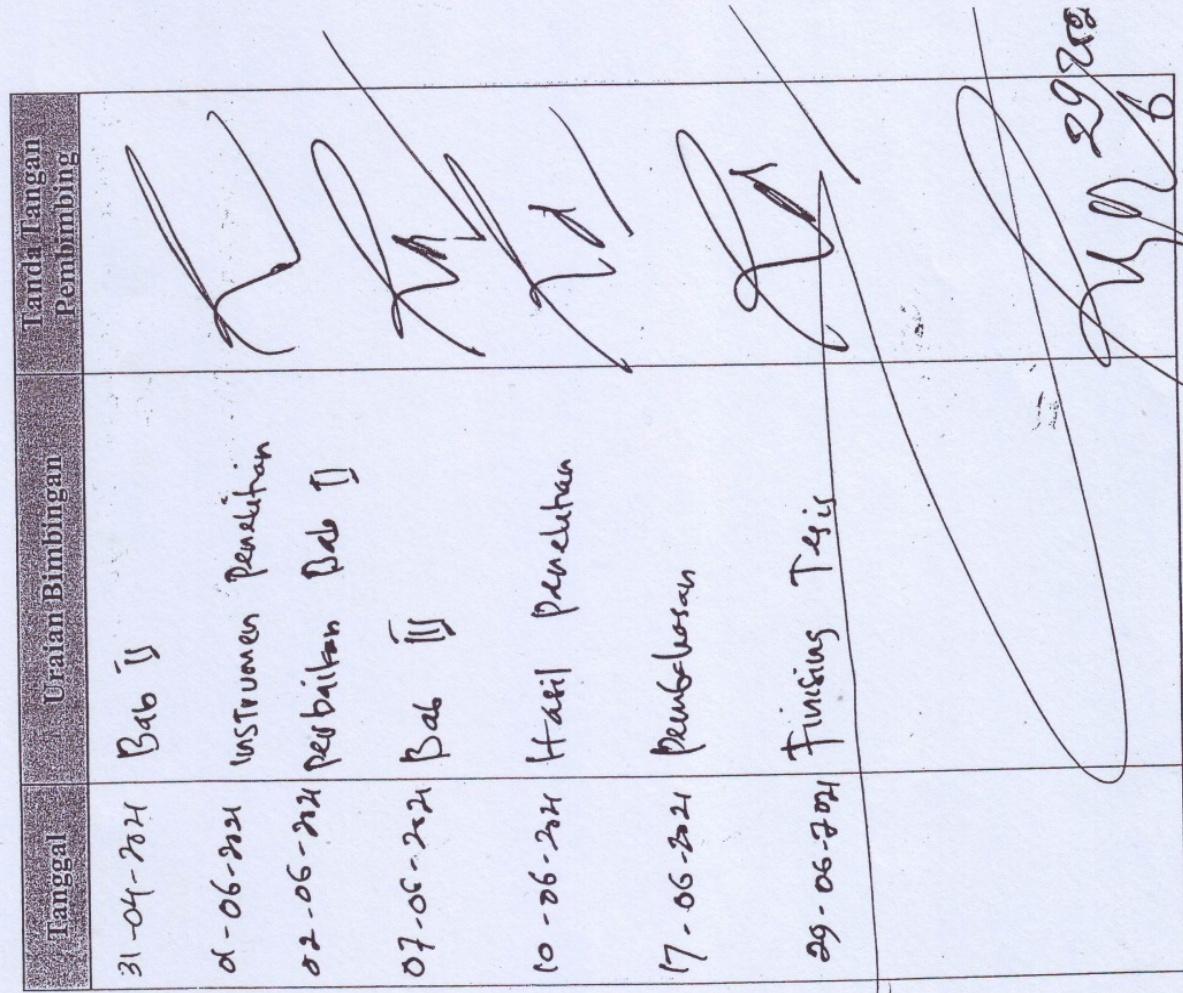 Tanggal Uraian Bimbingan Tanda Tangan Pembimbing
31-04-2021 Bab II
01-06-2021 Instrumen Penelitian
02-06-2021 perbaikan Bab II
07-06-2021 Bab III
10-06-2021 Hasil penelitian
17-06-2021 Pembahasan
29-06-2021 Finising Tesis
29
6